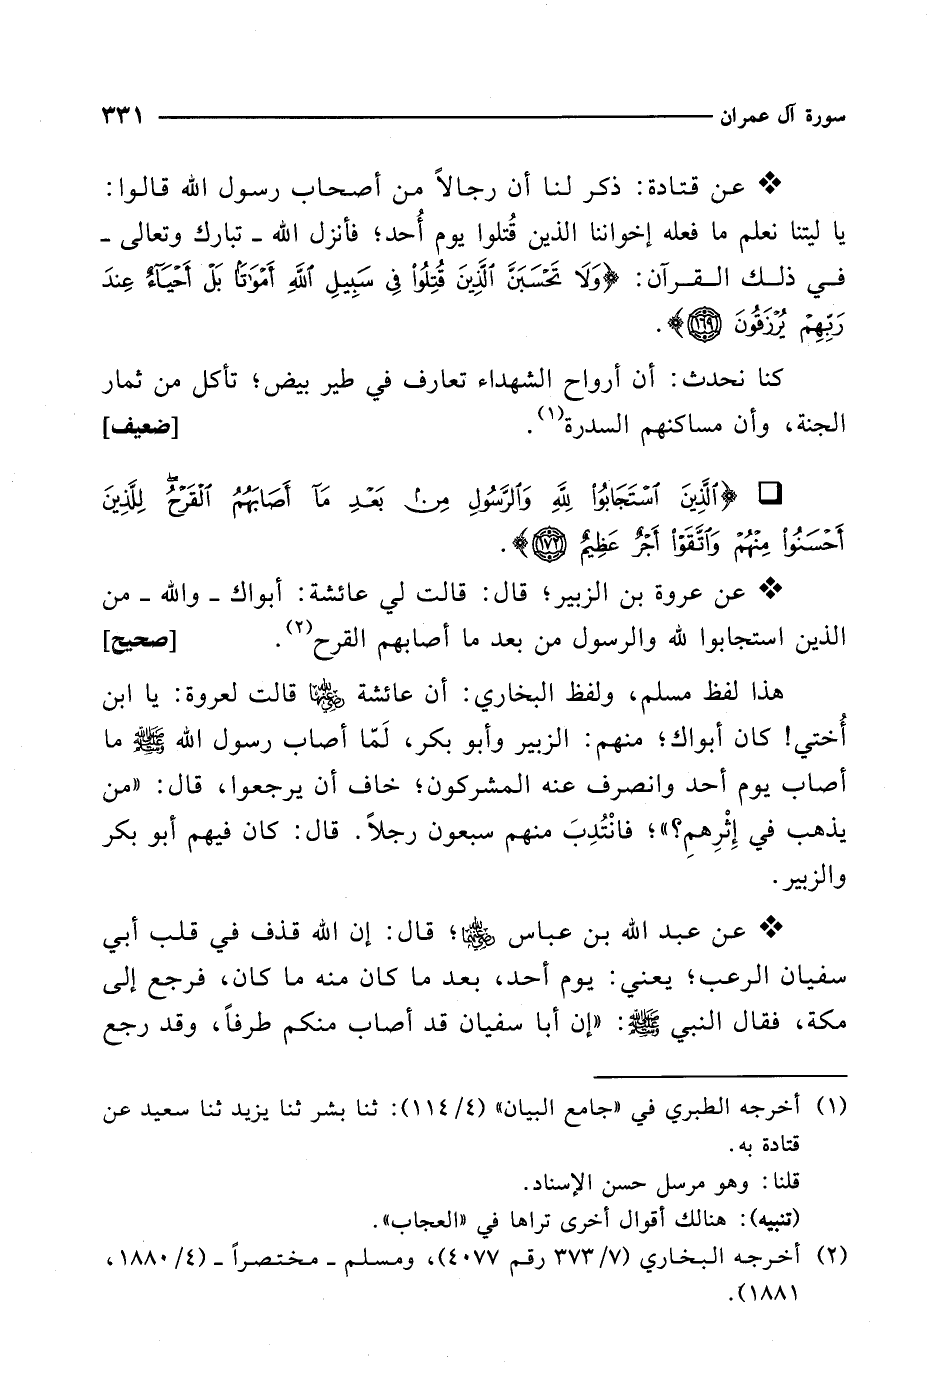 سورة آل عمران ٣٣١
❖ عن قتادة: ذكر لنا أن رجالاً من أصحاب رسول الله قالوا:
يا ليتنا نعلم ما فعله إخواننا الذين قُتلوا يوم أُحد؛ فأنزل الله ـ تبارك وتعالى ـ
في ذلك القرآن: ﴿وَلَا تَحْسَبَنَّ ٱلَّذِينَ قُتِلُوا۟ فِى سَبِيلِ ٱللَّهِ أَمْوَٰتًۢا بَلْ أَحْيَآءٌ عِندَ
رَبِّهِمْ يُرْزَقُونَ ﴿١٦٩﴾﴾.
كنا نحدث: أن أرواح الشهداء تعارف في طير بيض؛ تأكل من ثمار
الجنة، وأن مساكنهم السدرة(١). [ضعيف]
❑ ﴿ٱلَّذِينَ ٱسْتَجَابُوا۟ لِلَّهِ وَٱلرَّسُولِ مِنۢ بَعْدِ مَآ أَصَابَهُمُ ٱلْقَرْحُ ۚ لِلَّذِينَ
أَحْسَنُوا۟ مِنْهُمْ وَٱتَّقَوْا۟ أَجْرٌ عَظِيمٌ ﴿١٧٢﴾﴾.
❖ عن عروة بن الزبير؛ قال: قالت لي عائشة: أبواك ـ والله ـ من
الذين استجابوا لله والرسول من بعد ما أصابهم القرح(٢). [صحيح]
هذا لفظ مسلم، ولفظ البخاري: أن عائشة رضي الله عنها قالت لعروة: يا ابن
أُختي! كان أبواك؛ منهم: الزبير وأبو بكر، لَمّا أصاب رسول الله ﷺ ما
أصاب يوم أحد وانصرف عنه المشركون؛ خاف أن يرجعوا، قال: «من
يذهب في إِثْرِهمِ؟»؛ فانْتُدِبَ منهم سبعون رجلاً. قال: كان فيهم أبو بكر
والزبير.
❖ عن عبد الله بن عباس رضي الله عنهما؛ قال: إن الله قذف في قلب أبي
سفيان الرعب؛ يعني: يوم أحد، بعد ما كان منه ما كان، فرجع إلى
مكة، فقال النبي ﷺ: «إن أبا سفيان قد أصاب منكم طرفاً، وقد رجع
(١) أخرجه الطبري في «جامع البيان» (٤/ ١١٤): ثنا بشر ثنا يزيد ثنا سعيد عن
قتادة به.
قلنا: وهو مرسل حسن الإسناد.
(تنبيه): هنالك أقوال أخرى تراها في «العجاب».
(٢) أخرجه البخاري (٧/ ٣٧٣ رقم ٤٠٧٧)، ومسلم ـ مختصراً ـ (٤/ ١٨٨٠،
١٨٨١).